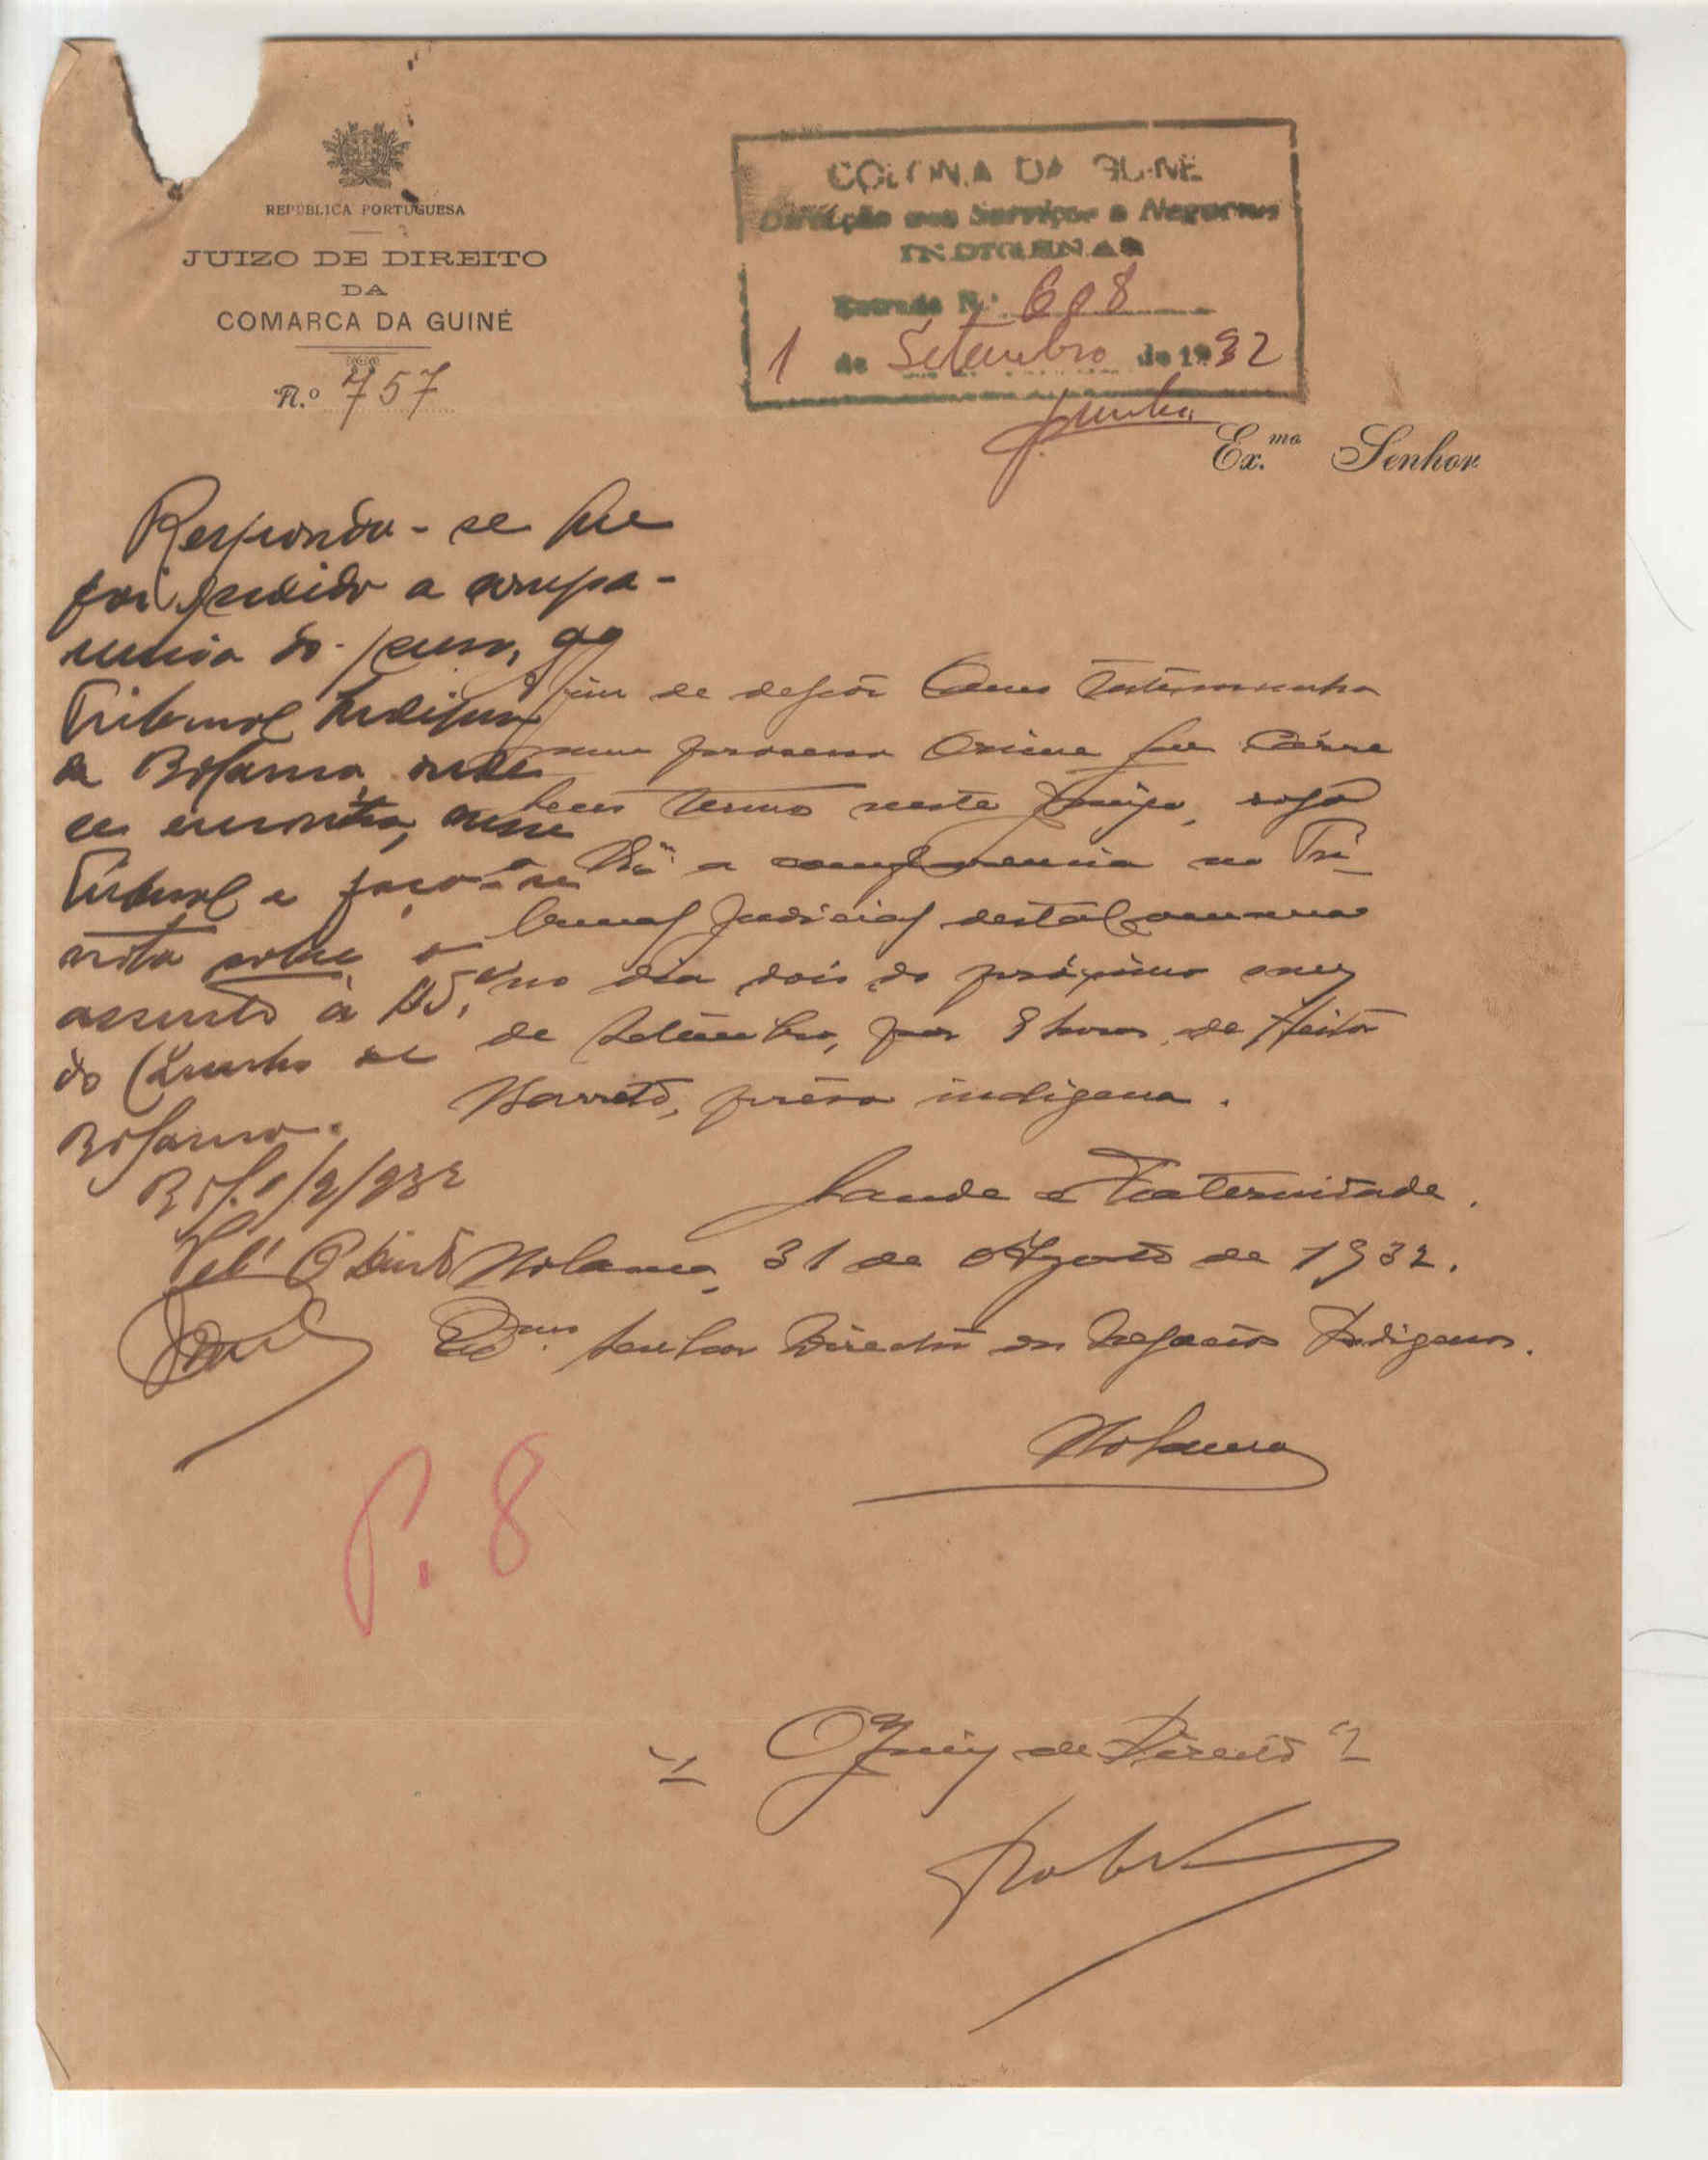 REPÚBLICA PORTUGUESA
JUIZO DE DIREITO
DA
COMARCA DA GUINÉ
N.º 757
COLONIA DA GUINÉ
Direcção dos Serviços e Negocios
INDIGENAS
Entrada N.º 608
1 de Setembro de 1932
Ex.mo Senhor
Responda-se que
foi pedido a compa-
rencia do preso, ao
Tribunal Indigena
de Bolama, onde
se encontra, nesse
Tribunal e faça-se
nota sobre o
assunto à
do de
Bolama.
Bol. 1/9/932
O Director
A fim de depôr como testemunha
num processo crime que corre
seus termos neste Juizo, rogo
a V. Ex.ª a comparencia no Tri-
bunal Judicial desta Comarca
no dia dois do próximo mez
de Setembro, por 9 horas, de Heitor
Barreto, prêso indigena.
Saude e Fraternidade.
Bolama, 31 de Agosto de 1932.
Ex.mo Senhor Director dos Negocios Indigenas.
Bolama
P. 8
O Juiz de Direito